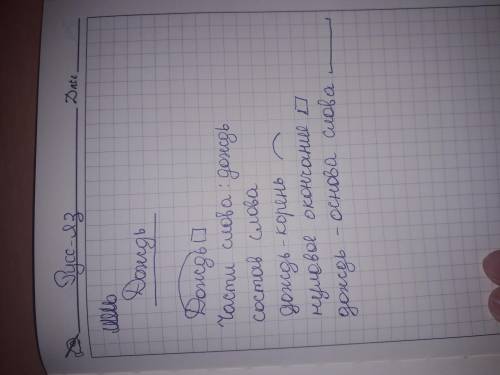 Русс-яз Date
Дождь
Дождь
Части слова: дождь
состав слова
дождь-корень
нулевое окончание
дождь - основа слова